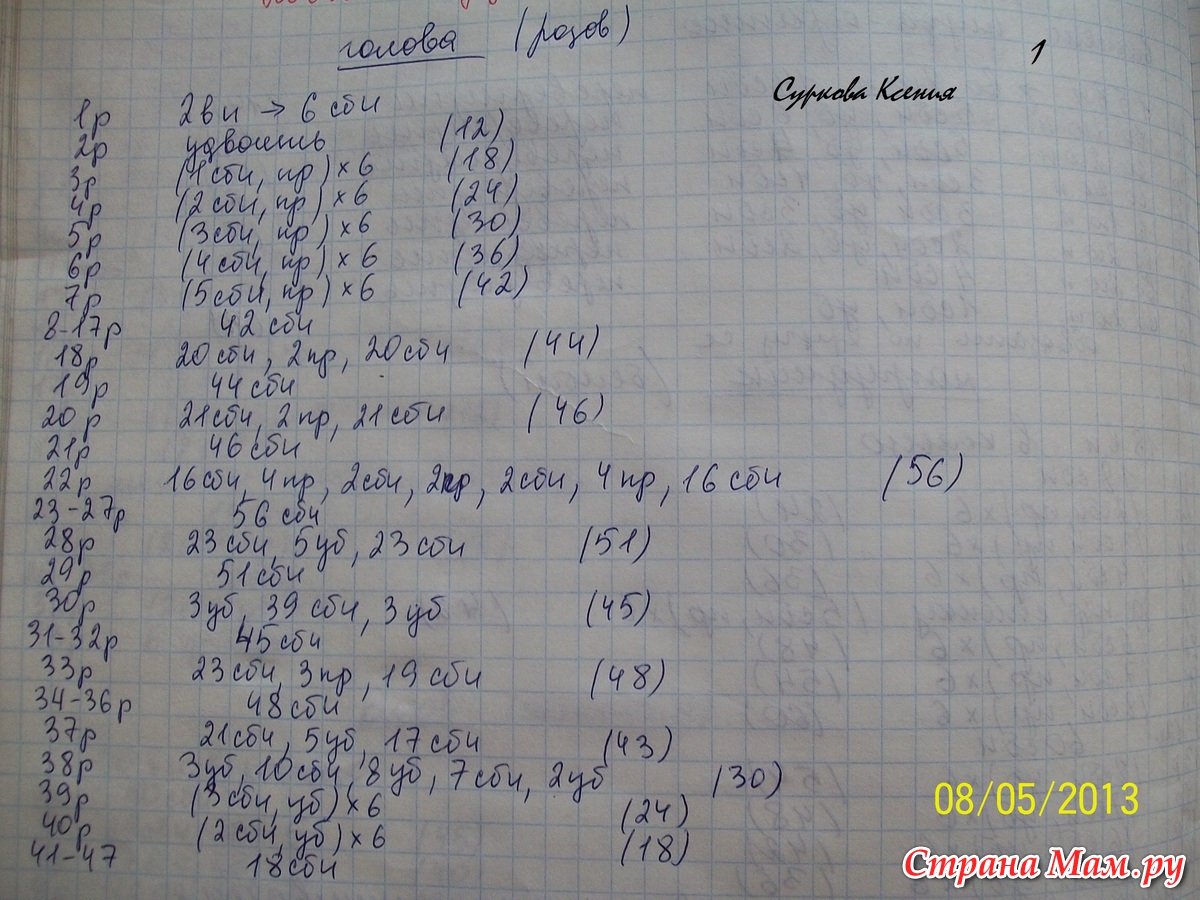 голова (розов)
1
Суркова Ксения
1р 2вп → 6 сбн
2р удвоить (12)
3р (1сбн, пр) × 6 (18)
4р (2сбн, пр) × 6 (24)
5р (3сбн, пр) × 6 (30)
6р (4сбн, пр) × 6 (36)
7р (5сбн, пр) × 6 (42)
8-17р 42 сбн
18р 20сбн, 2пр, 20сбн (44)
19р 44 сбн
20р 21сбн, 2пр, 21сбн (46)
21р 46 сбн
22р 16сбн, 4пр, 2сбн, 2пр, 2сбн, 4пр, 16 сбн (56)
23-27р 56 сбн
28р 23сбн, 5уб, 23сбн (51)
29р 51 сбн
30р 3уб, 39 сбн, 3 уб (45)
31-32р 45сбн
33р 23сбн, 3пр, 19сбн (48)
34-36р 48 сбн
37р 21сбн, 5уб, 17сбн (43)
38р 3уб, 10сбн, 8уб, 7сбн, 2уб (30)
39р (3сбн, уб) × 6 (24)
40р (2сбн, уб) × 6 (18)
41-47 18сбн
08/05/2013
Страна Мам.ру